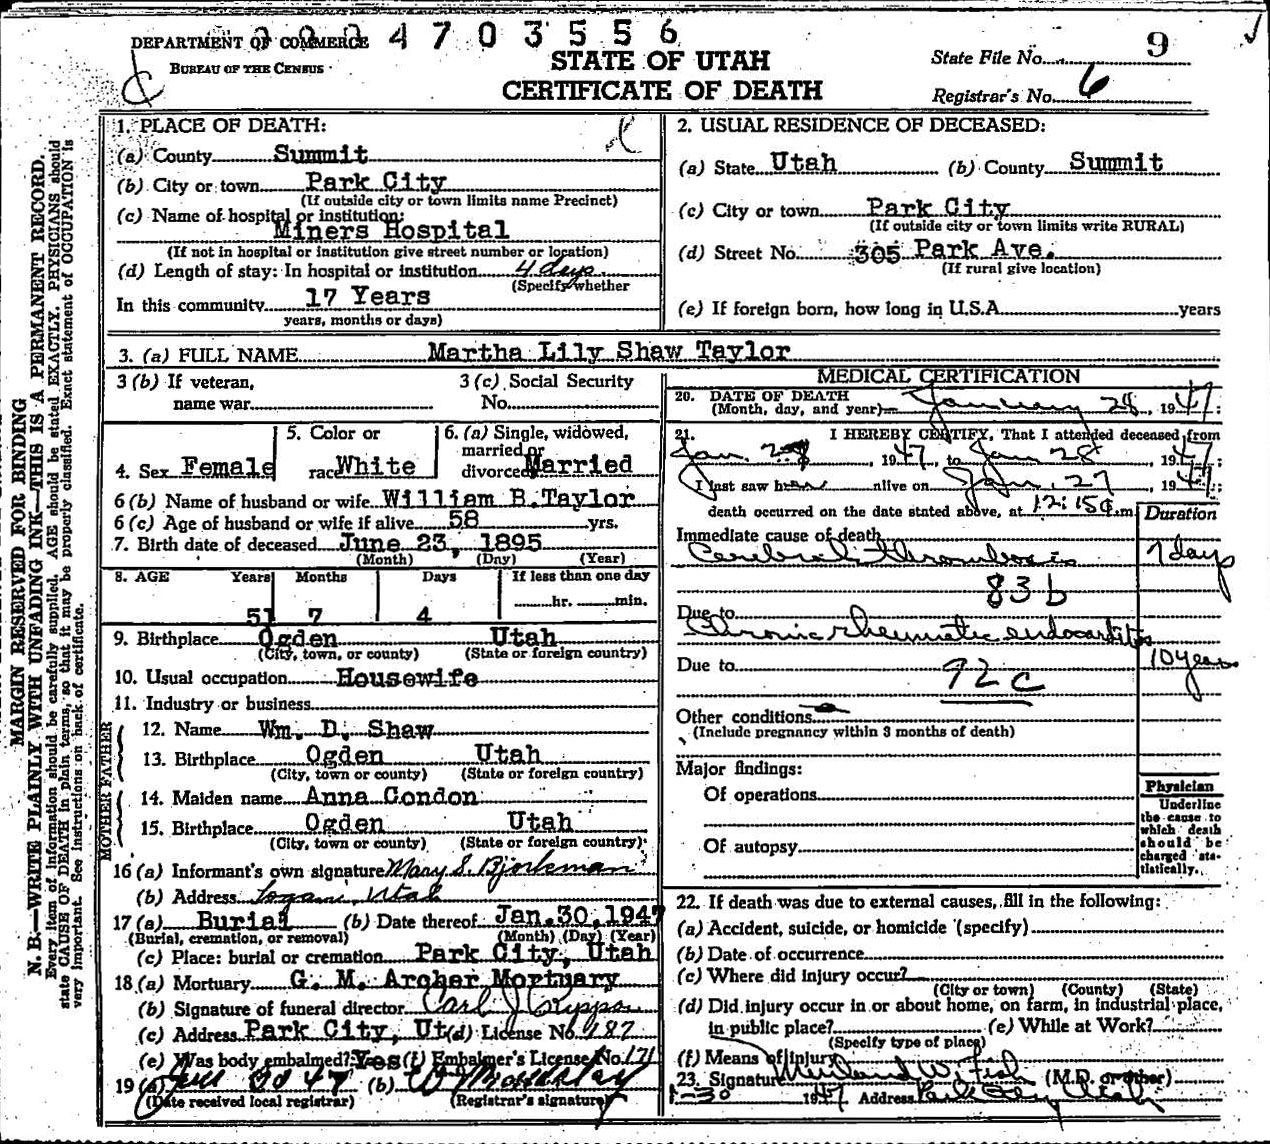 0004703556
DEPARTMENT OF COMMERCE
BUREAU OF THE CENSUS
STATE OF UTAH
CERTIFICATE OF DEATH
State File No. 9
Registrar's No. 6
MARGIN RESERVED FOR BINDING
N. B.—WRITE PLAINLY WITH UNFADING INK—THIS IS A PERMANENT RECORD.
Every item of information should be carefully supplied. AGE should be stated EXACTLY. PHYSICIANS should
state CAUSE OF DEATH in plain terms, so that it may be properly classified. Exact statement of OCCUPATION is
very important. See instructions on back of certificate.
1. PLACE OF DEATH:
(a) County Summit
(b) City or town Park City
(If outside city or town limits name Precinct)
(c) Name of hospital or institution:
Miners Hospital
(If not in hospital or institution give street number or location)
(d) Length of stay: In hospital or institution 4 days
(Specify whether
In this community 17 Years
years, months or days)
2. USUAL RESIDENCE OF DECEASED:
(a) State Utah (b) County Summit
(c) City or town Park City
(If outside city or town limits write RURAL)
(d) Street No. 305 Park Ave.
(If rural give location)
(e) If foreign born, how long in U.S.A. years
3. (a) FULL NAME Martha Lily Shaw Taylor
3 (b) If veteran,
name war
3 (c) Social Security
No.
4. Sex Female
5. Color or
race White
6. (a) Single, widowed,
married or
divorced Married
6 (b) Name of husband or wife William B. Taylor
6 (c) Age of husband or wife if alive 58 yrs.
7. Birth date of deceased June 23, 1895
(Month) (Day) (Year)
8. AGE Years Months Days If less than one day
51 7 4 hr. min.
9. Birthplace Ogden Utah
(City, town, or county) (State or foreign country)
10. Usual occupation Housewife
11. Industry or business
FATHER
12. Name Wm. D. Shaw
13. Birthplace Ogden Utah
(City, town or county) (State or foreign country)
MOTHER
14. Maiden name Anna Condon
15. Birthplace Ogden Utah
(City, town or county) (State or foreign country)
16 (a) Informant's own signature Mary S. Bjorkman
(b) Address Logan, Utah
17 (a) Burial (b) Date thereof Jan. 30, 1947
(Burial, cremation, or removal) (Month) (Day) (Year)
(c) Place: burial or cremation Park City, Utah
18 (a) Mortuary G. M. Archer Mortuary
(b) Signature of funeral director Carl J
(c) Address Park City, Ut (d) License No. 187
(e) Was body embalmed? Yes (f) Embalmer's License No. 171
19 (a) 30 47 (b)
(Date received local registrar) (Registrar's signature)
MEDICAL CERTIFICATION
20. DATE OF DEATH
(Month, day, and year) January 28, 1947
21. I HEREBY CERTIFY, That I attended deceased from
Jan. 1947, to Jan 28, 1947;
I last saw her alive on Jan. 27, 1947;
death occurred on the date stated above, at 12:15 a.m.
Duration
Immediate cause of death
Cerebral thrombosis 7 days
83b
Due to
Chronic rheumatic endocarditis 10 years
Due to 92c
Other conditions
(Include pregnancy within 3 months of death)
Major findings:
Of operations
Of autopsy
Physician
Underline
the cause to
which death
should be
charged sta-
tistically.
22. If death was due to external causes, fill in the following:
(a) Accident, suicide, or homicide (specify)
(b) Date of occurrence
(c) Where did injury occur?
(City or town) (County) (State)
(d) Did injury occur in or about home, on farm, in industrial place,
in public place? (e) While at Work?
(Specify type of place)
(f) Means of injury
23. Signature W. (M.D. or other)
1-30 1947 Address Park City Utah